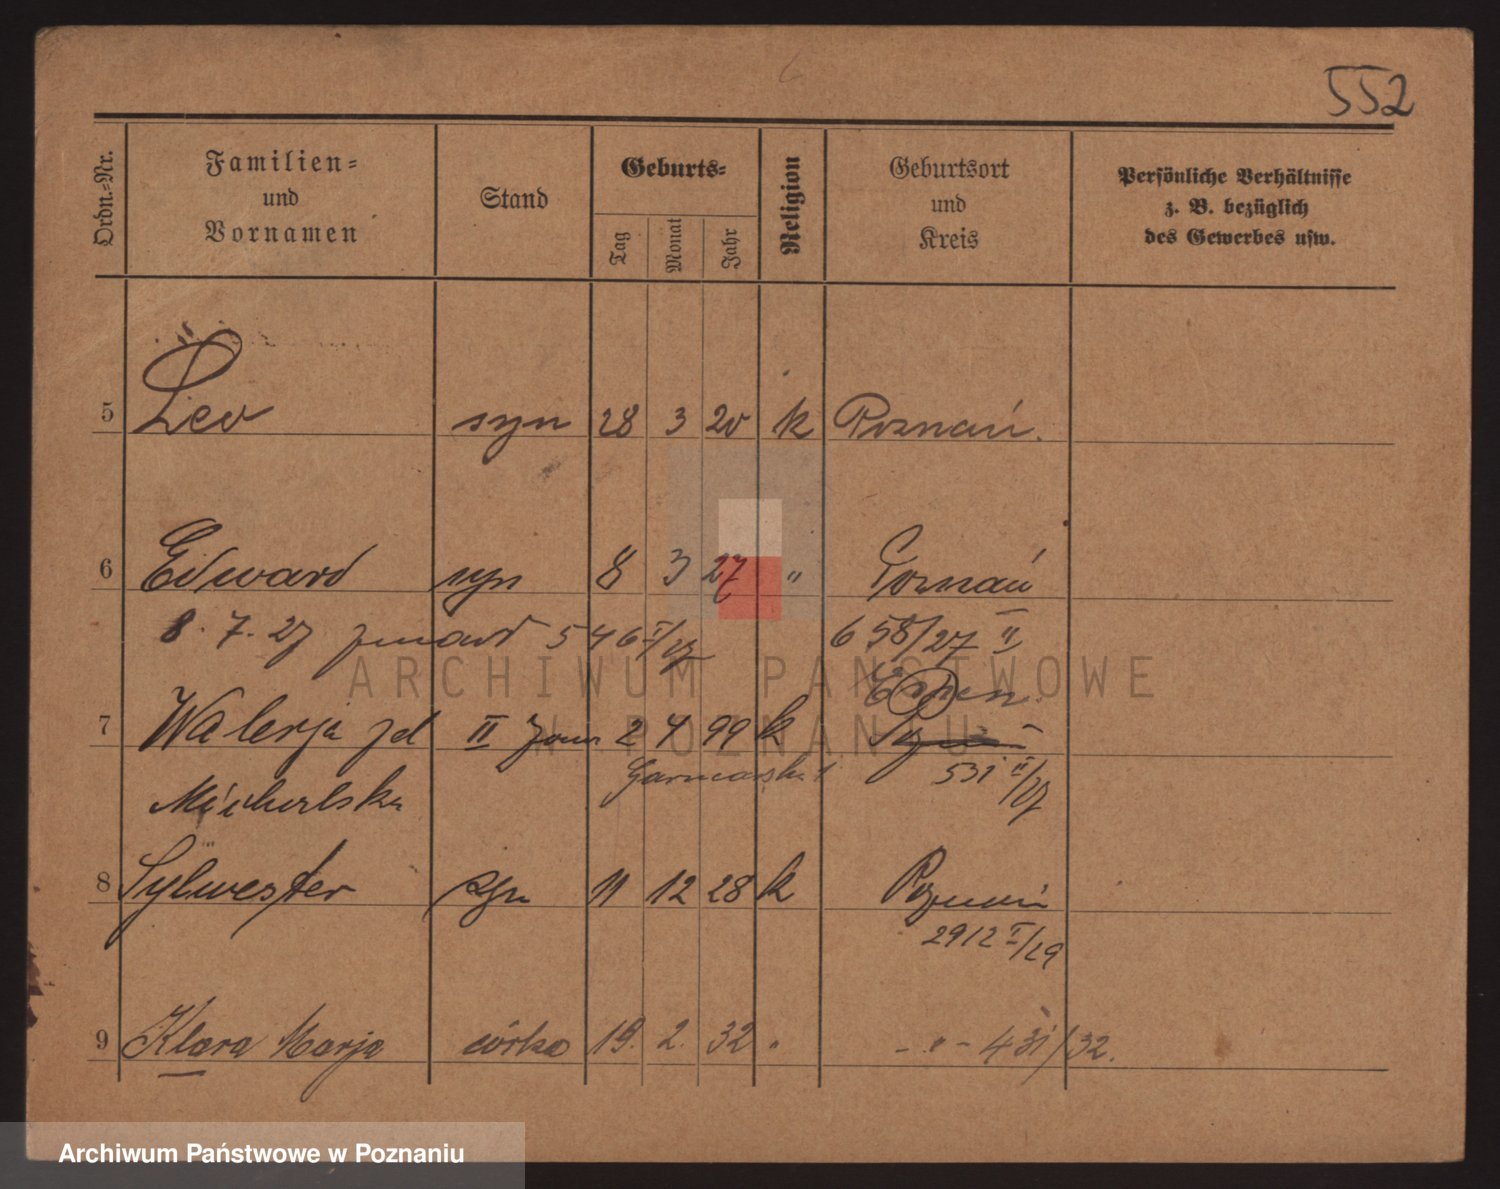 552
Ordn.-Nr.
Familien-
und
Vornamen
Stand
Geburts-
Tag
Monat
Jahr
Religion
Geburtsort
und
Kreis
Persönliche Verhältnisse
z. B. bezüglich
des Gewerbes usw.
5 Leo syn 28 3 20 k Poznań.
6 Edward syn 8 3 27 " Poznań
8. 7. 27 zmarł 546 I/27 658/27 II
ARCHIWUM PAŃSTWOWE
W POZNANIU
Essen
7 Walerja zd II żona 2 4 99 k
531 II/27
Michalska
8 Sylwester syn 11 12 28 k Poznań
2912 I/29
9 Klara Marja córka 19. 2. 32 " - " - 431/32.
Archiwum Państwowe w Poznaniu